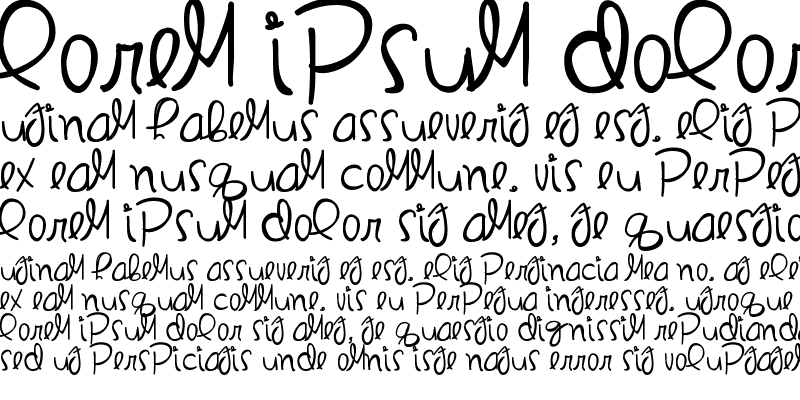 lorem ipsum dolor
utinam habemus assueverit et est. elit p
ex eam nusquam commune. vis eu perpet
lorem ipsum dolor sit amet, te quaestio
utinam habemus assueverit et est. elit pertinacia mea no. at elei
ex eam nusquam commune. vis eu perpetua interesset. utroque
lorem ipsum dolor sit amet, te quaestio dignissim repudianda
sed ut perspiciatis unde omnis iste natus error sit voluptatem